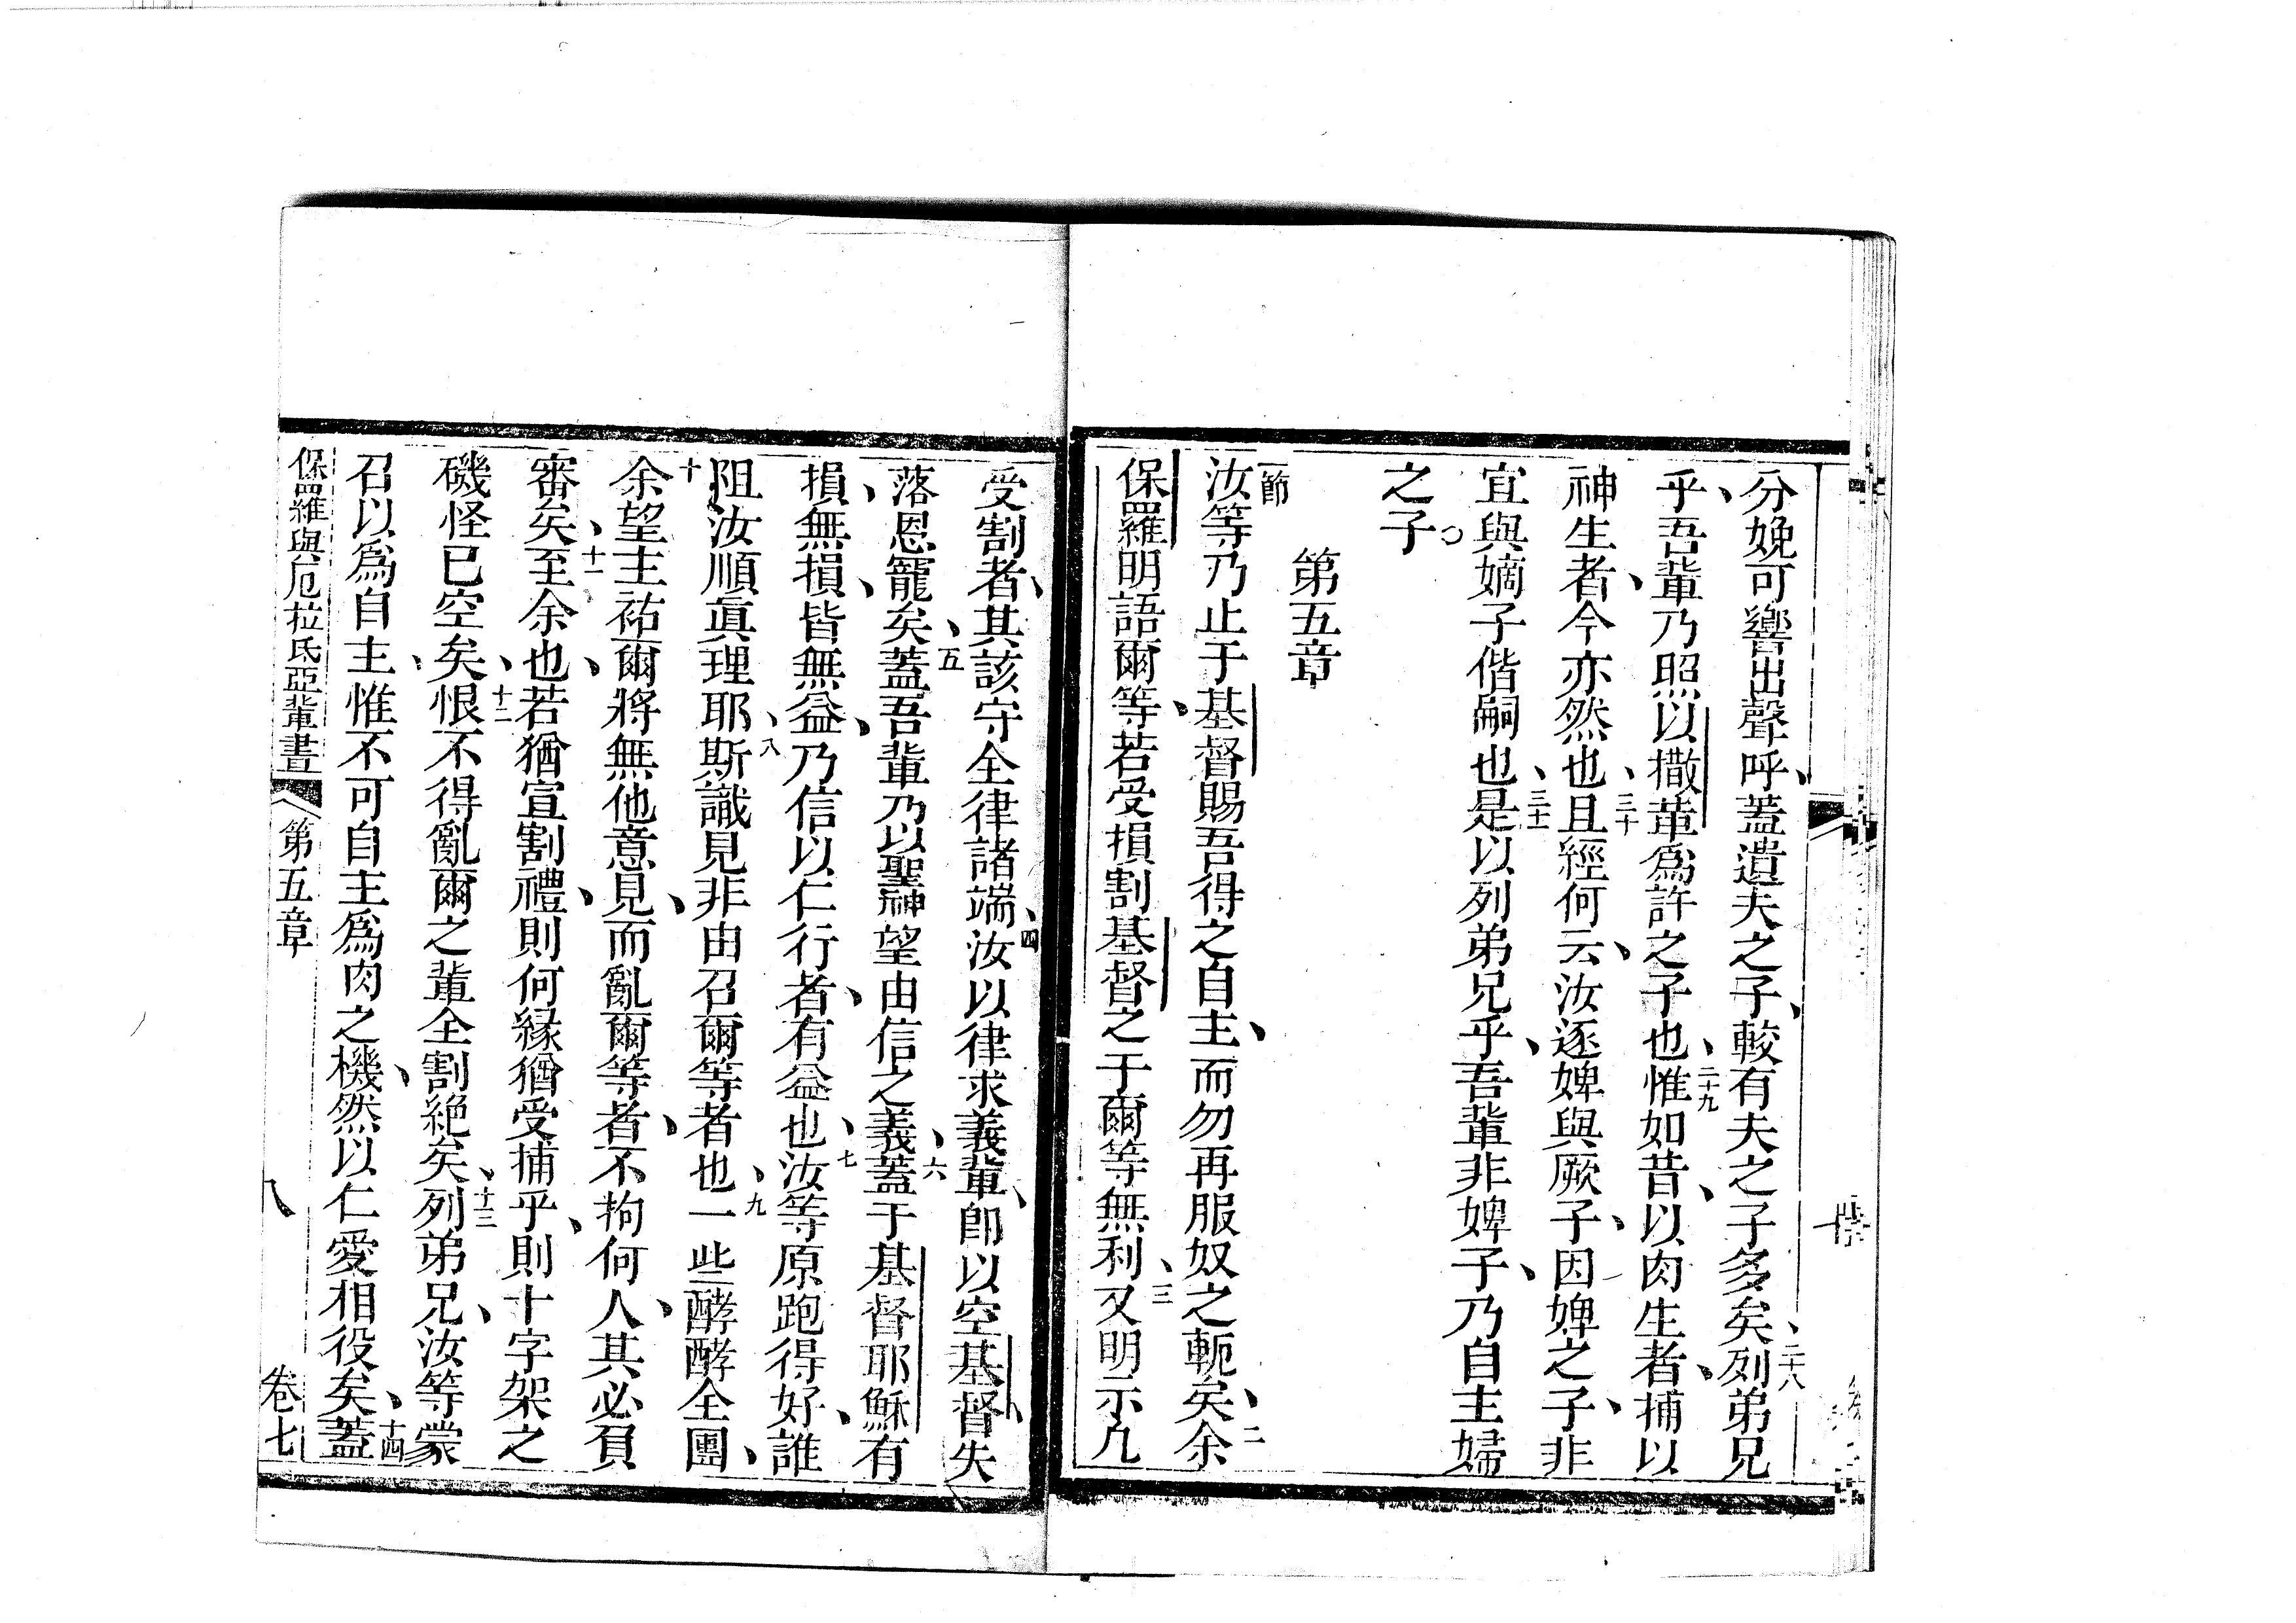 分娩可響出聲呼、蓋遺夫之子、較有夫之子多矣、二十八列弟兄
乎、吾輩乃照以撒革爲許之子也、二十九惟如昔、以肉生者、捕以
神生者、今亦然也、三十且經何云、汝逐婢與厥子、因婢之子、非
宜與嫡子偕嗣也、三十一是以列弟兄乎、吾輩非婢子、乃自主婦
之子。
第五章
一節汝等乃止于基督賜吾得之自主、而勿再服奴之軛矣、二余
保羅明語爾等、若受損割基督之于爾等無利、三又明示凡
受割者、其該守全律諸端、四汝以律求義輩、卽以空基督、失
落恩寵矣、五蓋吾輩乃以聖神望由信之義、六蓋于基督耶穌有
損、無損、皆無益、乃信以仁行者、有益也、七汝等原跑得好、誰
阻汝順眞理耶、八斯識見非由召爾等者也、九一些酵酵全團、
十余望主祐爾將無他意見、而亂爾等者、不拘何人、其必負
審矣、十一至余也、若猶宣割禮、則何縁猶受捕乎、則十字架之
磯怪已空矣、十二恨不得亂爾之輩全割絶矣、十三列弟兄、汝等蒙
召以爲自主、惟不可自主爲肉之機、然以仁愛相役矣、十四蓋
保羅與厄拉氐亞輩書 第五章 八 卷七